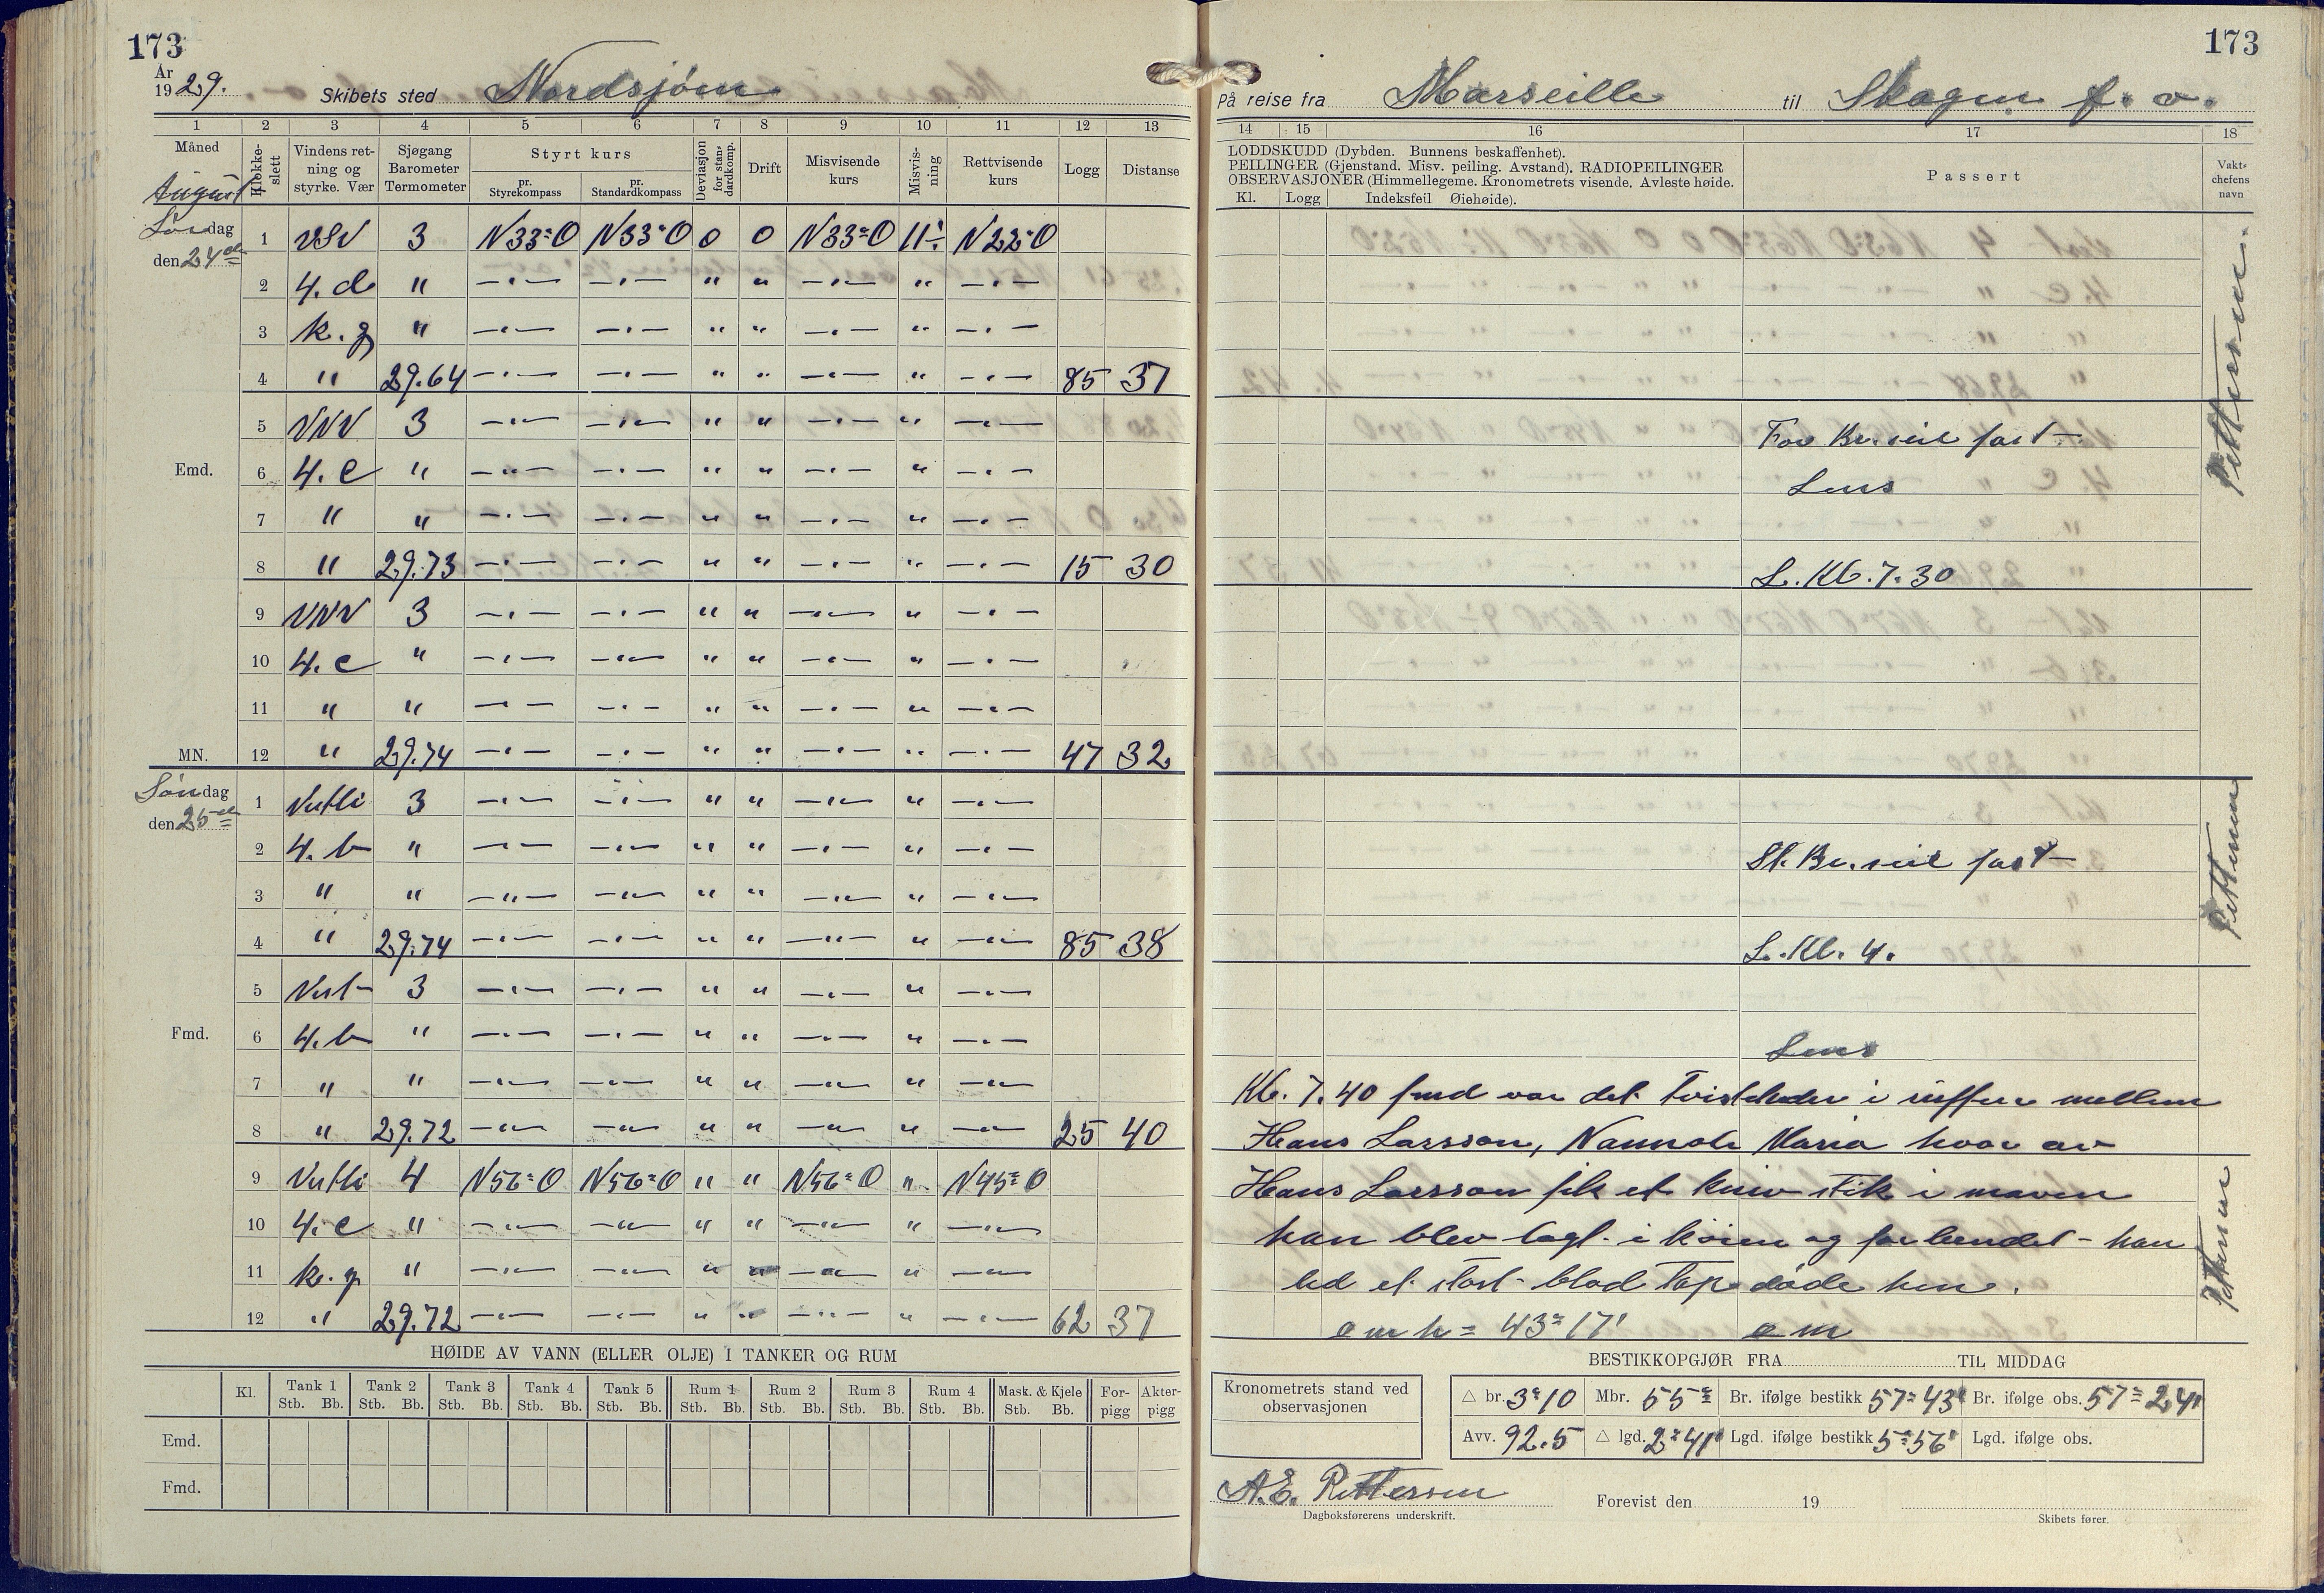 173
År
1929. Skibets sted Nordsjøen
1 2 3 4 5 6 7 8 9 10 11 12 13
Måned Klokke-slett Vindens ret-ning og styrke. Vær Sjøgang Barometer Termometer Styrt kurs pr. Styrekompass pr. Standardkompass Deviasjon for stan-dardkomp. Drift Misvisende kurs Misvis-ning Rettvisende kurs Logg Distanse
August
Lørdag 1 VSV 3 N33°O N33°O 0 0 N33°O 11°÷ N22°O
den 24de
2 4.d " —"— —"— " " —"— " —"—
3 k.g " —"— —"— " " —"— " —"—
4 " 29.64 —"— —"— " " —"— " —"— 85 37
5 VNV 3 —"— —"— " " —"— " —"—
Emd. 6 4.c " —"— —"— " " —"— " —"—
7 " " —"— —"— " " —"— " —"—
8 " 29.73 —"— —"— " " —"— " —"— 15 30
9 VNV 3 —"— —"— " " —"— " —"—
10 4.c " —"— —"— " " —"— " —"—
11 " " —"— —"— " " —"— " —"—
MN. 12 " 29.74 —"— —"— " " —"— " —"— 47 32
Søndag 1 Vestli 3 —"— —"— " " —"— " —"—
den 25de
2 4.b " —"— —"— " " —"— " —"—
3 " " —"— —"— " " —"— " —"—
4 " 29.74 —"— —"— " " —"— " —"— 85 38
5 Vest 3 —"— —"— " " —"— " —"—
Fmd. 6 4.b " —"— —"— " " —"— " —"—
7 " " —"— —"— " " —"— " —"—
8 " 29.72 —"— —"— " " —"— " —"— 25 40
9 Vestli 4 N56°O N56°O " " N56°O " N45°O
10 4.c " —"— —"— " " —"— " —"—
11 k.g " —"— —"— " " —"— " —"—
12 " 29.72 —"— —"— " " —"— " —"— 62 37
HØIDE AV VANN (ELLER OLJE) I TANKER OG RUM
Kl. Tank 1 Tank 2 Tank 3 Tank 4 Tank 5 Rum 1 Rum 2 Rum 3 Rum 4 Mask. & Kjele For-pigg Akter-pigg
Stb. Bb. Stb. Bb. Stb. Bb. Stb. Bb. Stb. Bb. Stb. Bb. Stb. Bb. Stb. Bb. Stb. Bb. Stb. Bb.
Emd.
Fmd.
173
På reise fra Marseille til Skagen f. o.
14 15 16 17 18
LODDSKUDD (Dybden. Bunnens beskaffenhet).
PEILINGER (Gjenstand. Misv. peiling. Avstand). RADIOPEILINGER
OBSERVASJONER (Himmellegeme. Kronometrets visende. Avleste høide.
Kl. Logg Indeksfeil Øiehøide).
Passert
Vakt-chefens navn
Pettersen
For Br. seil fast
Lens
L. Kl. 7.30
St. Br. seil fast
Pettersen
L. Kl. 4.
Lens
Kl. 7.40 fmd var det Tvistcheder i ruffen mellem
Hans Larsson, Maria hvor av
Hans Larsson fik et kniv stik i maven
han blev lagt i køien og forbundet - han
led et stort blod Tap døde hen.
Pettersen
o m h = 43° 17' o m
BESTIKKOPGJØR FRA TIL MIDDAG
Kronometrets stand ved observasjonen
△ br. 3°10 Mbr. 55° Br. ifølge bestikk 57°43' Br. ifølge obs. 57°24'
Avv. 92.5 △ lgd. 2°41' Lgd. ifølge bestikk 5°56' Lgd. ifølge obs.
A.E. Pettersen Forevist den 19
Dagboksførerens underskrift. Skibets fører.